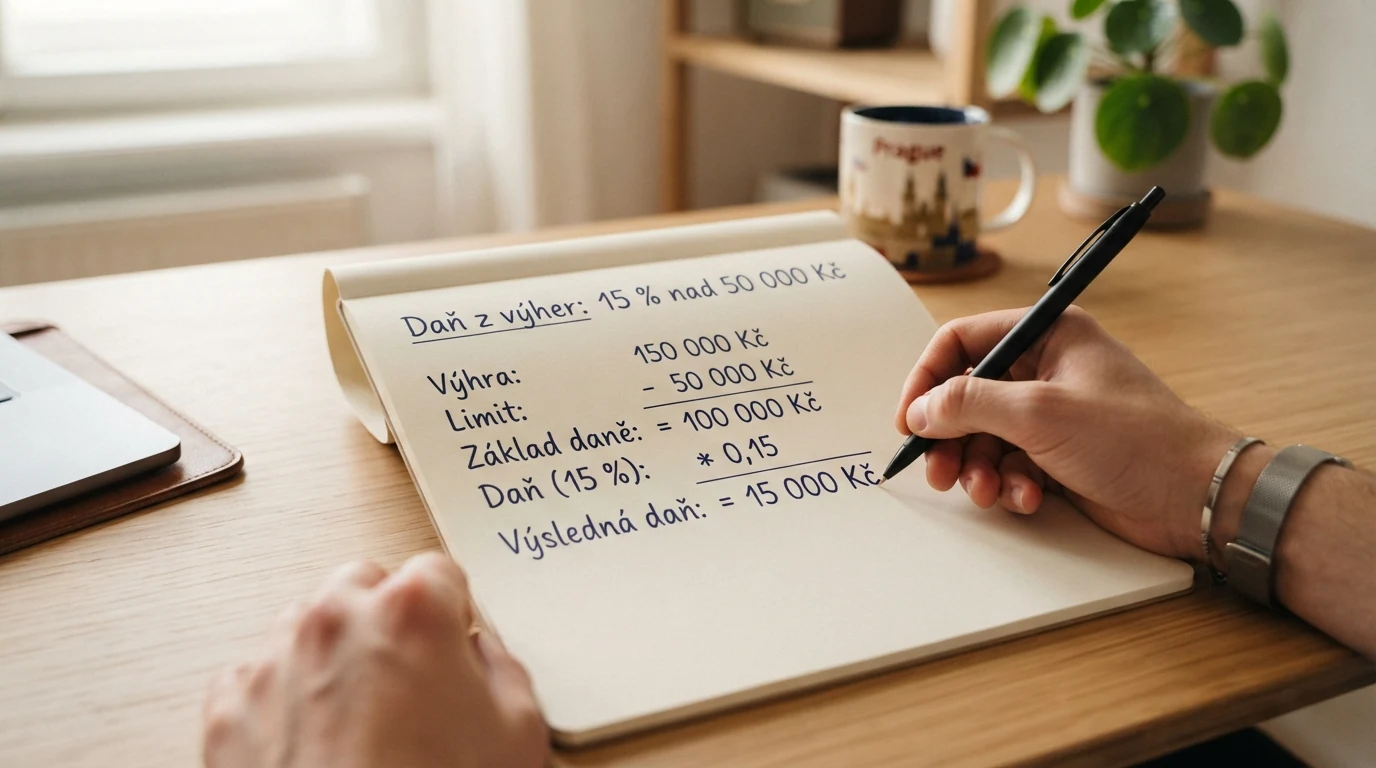 Daň z výher: 15 % nad 50 000 Kč
Výhra: 150 000 Kč
Limit: - 50 000 Kč
Základ daně: = 100 000 Kč
Daň (15 %): * 0,15
Výsledná daň: = 15 000 Kč
Prague